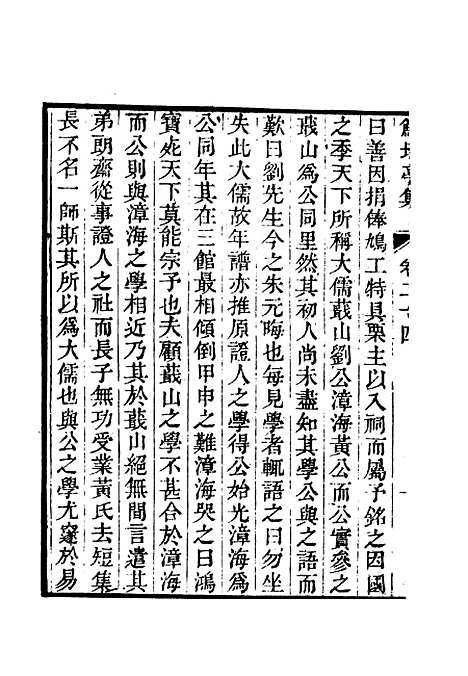 鮚埼亭集 卷二十四
曰善因捐俸鳩工特具栗主以入祠而屬予銘之因國
之季天下所稱大儒蕺山劉公漳海黃公而公實參之
蕺山為公同里然其初人尚未盡知其學公與之語而
歎曰劉先生今之朱元晦也每見學者輒語之曰勿坐
失此大儒故年譜亦推原證人之學得公始光漳海為
公同年其在三館最相傾倒甲申之難漳海哭之曰鴻
寶死天下莫能宗予也夫顧蕺山之學不甚合於漳海
而公則與漳海之學相近乃其於蕺山絕無間言遣其
弟朝齋從事證人之社而長子無功受業黃氏去短集
長不名一師斯其所以為大儒也與公之學尤窾於易